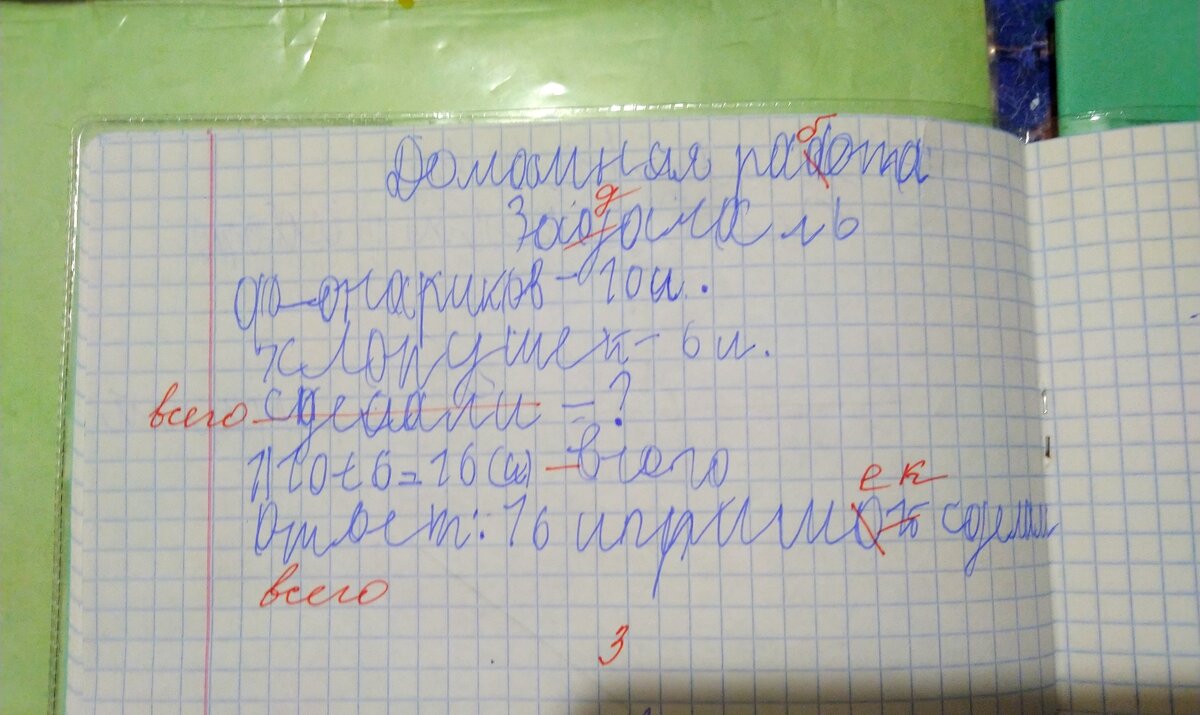 Домашная работа
б
Задача № 6
д
фонариков - 10 и.
хлопушек - 6 и.
всего сделали - ?
1) 10 + 6 = 16 (и) - всего
ек
Ответ: 16 игришок сделали
всего
3